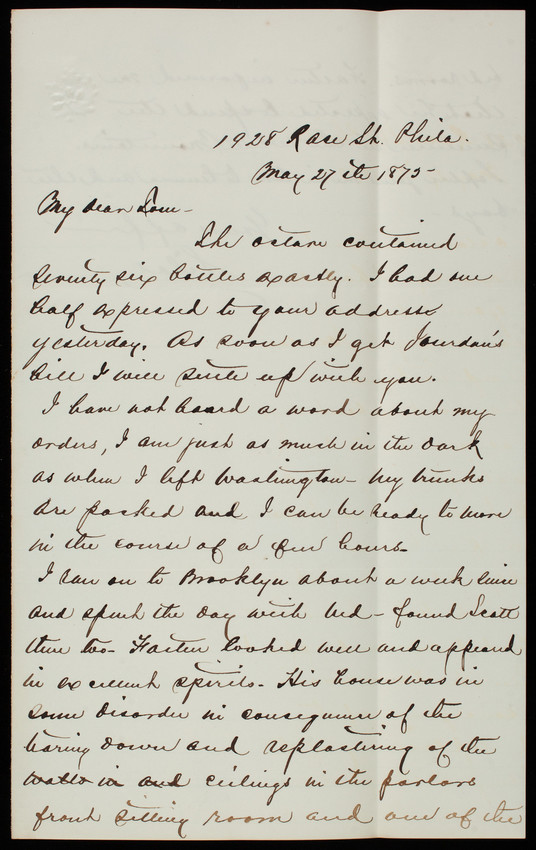 1928 Race St. Phila.
May 27th 1875-
My dear Tom-
The octave contained
seventy six bottles exactly. I had one
half expressed to your address
yesterday. As soon as I get Jourdan's
bill I will settle up with you.
I have not heard a word about my
orders, I am just as much in the dark
as when I left Washington- My trunks
are packed and I can be ready to move
in the course of a few hours-
I ran on to Brooklyn about a week since
and spent the day with Ned- found Scott
there too- Father looked well and appeared
in excellent spirits- His house was in
some disorder in consequence of the
tearing down and replastering of the
walls in and ceilings in the parlors
front sitting room and one of the